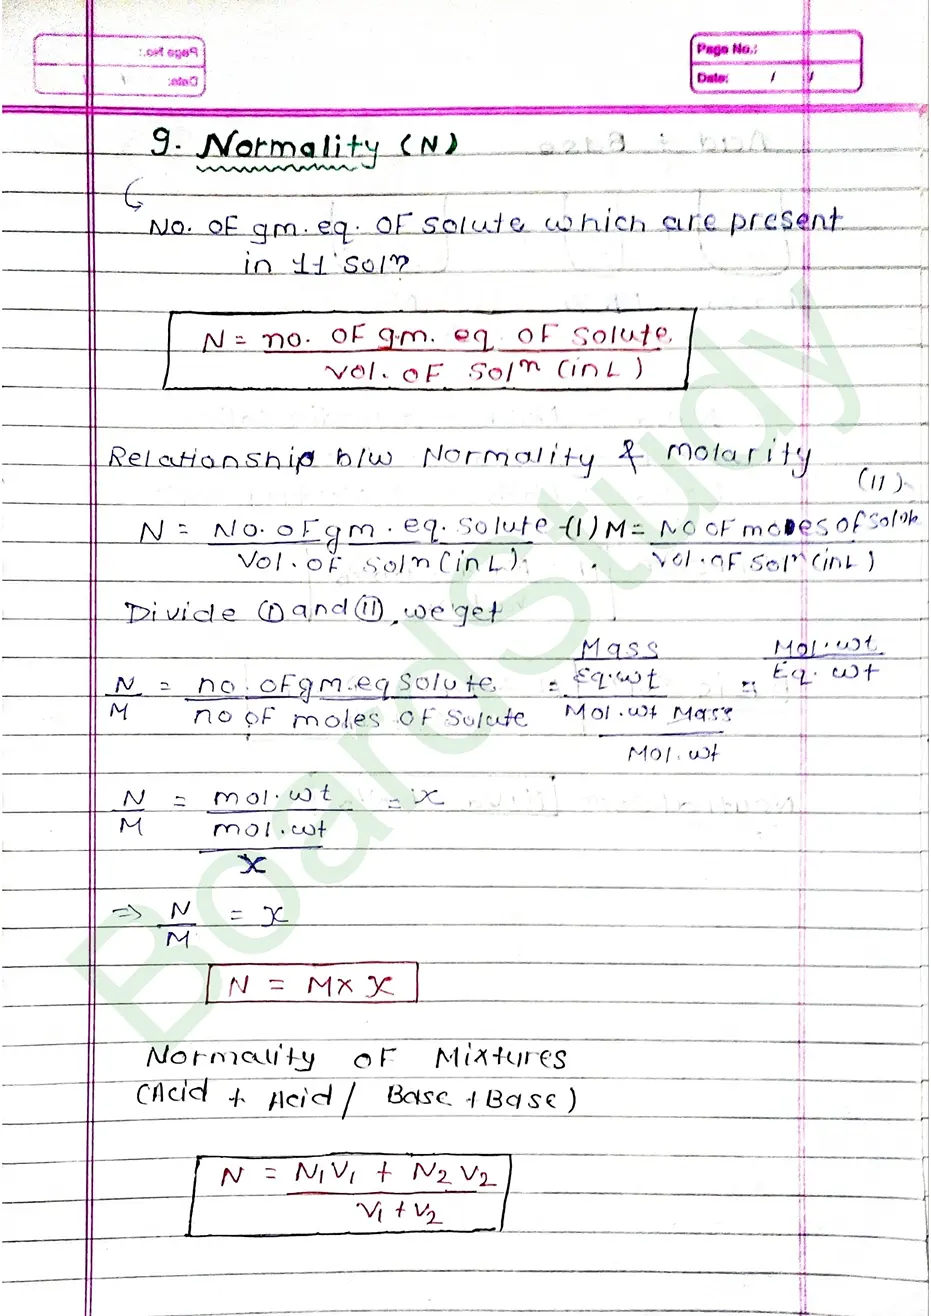 Page No.:
Date: / /
9. Normality (N)
No. of gm. eq. of solute which are present
in 1L soln
N = no. of gm. eq. of solute
vol. of soln (in L)
Relationship b/w Normality & molarity
(II)
N = No. of gm. eq. solute -(I) M = No of moles of solute
Vol. of soln (in L) Vol. of soln (in L)
Divide (I) and (II), we get
Mass Mol. wt
N = no. of gm. eq solute = Eq. wt = Eq. wt
M no of moles of solute Mol. wt Mass
Mol. wt
N = mol. wt = x
M mol. wt
x
=> N = x
M
N = M x x
Normality of Mixtures
(Acid + Acid / Base + Base)
N = N1V1 + N2V2
V1 + V2
BoardStudy